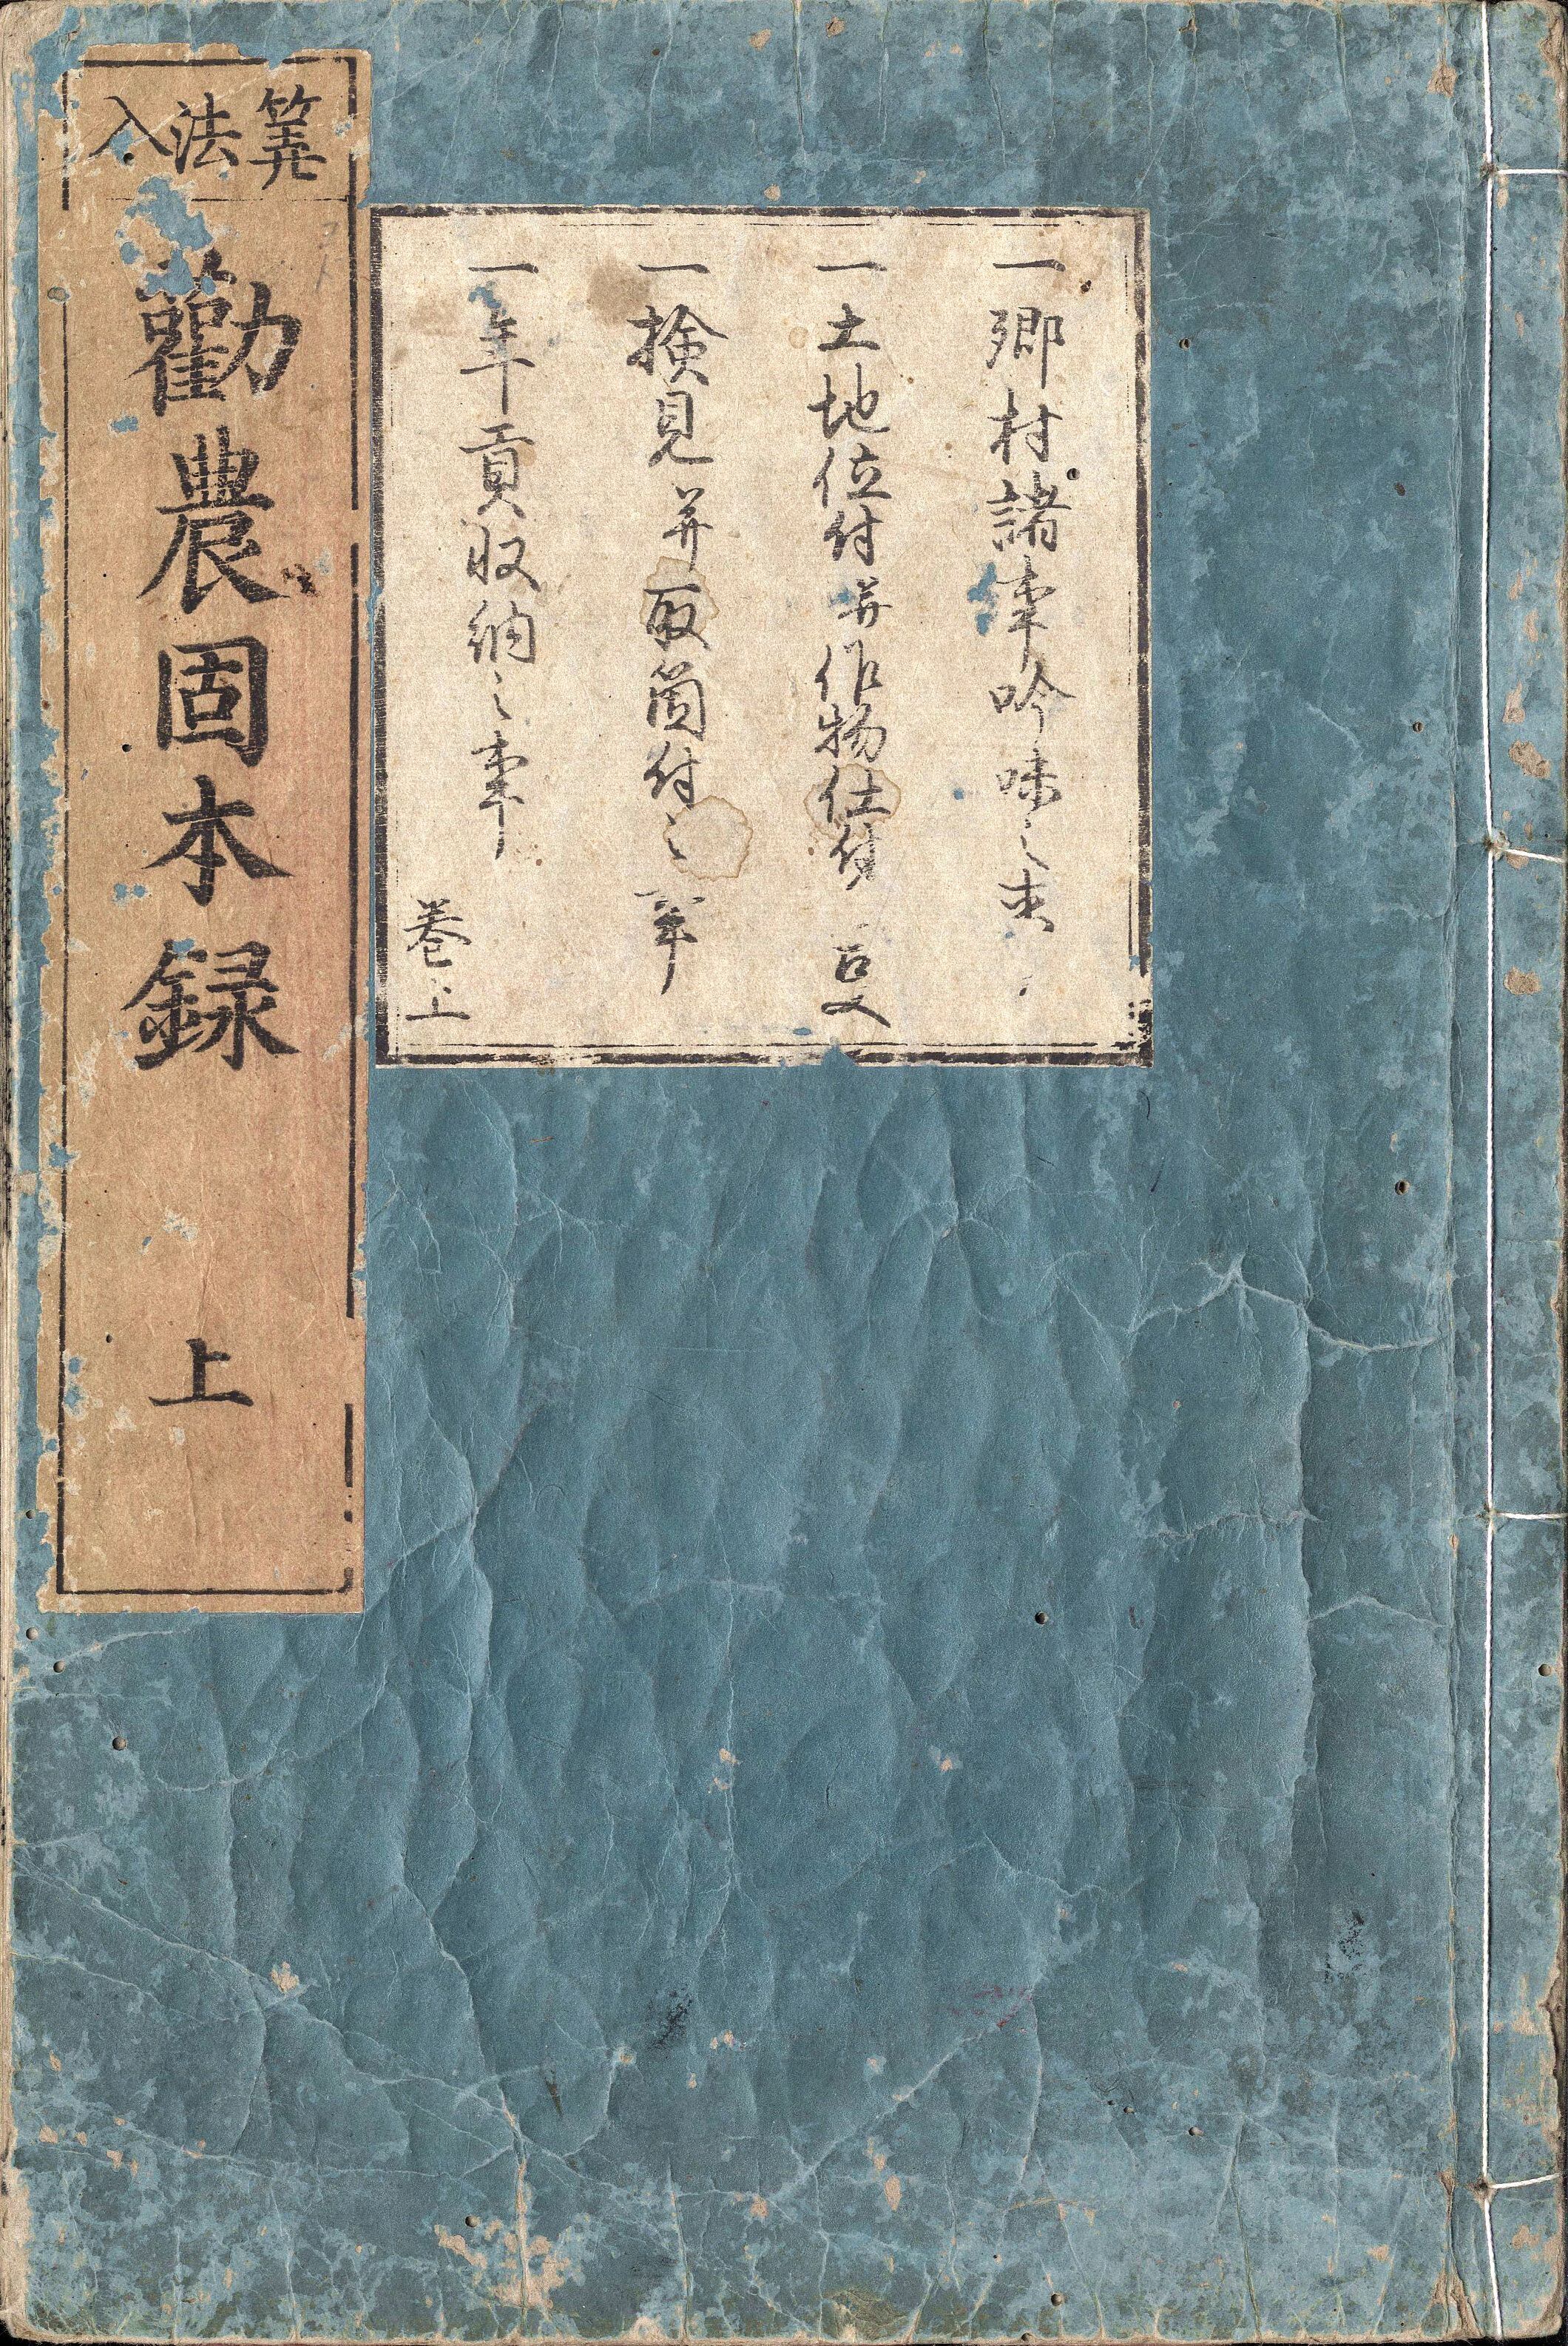 筭法入
勸農固本録
上
一郷村諸事吟味之叓
一土地位付并作物仕付
一検見并取箇付之事
一年貢収納之事
巻上